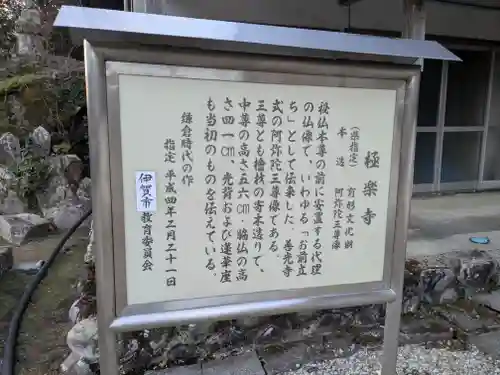 極楽寺
（県指定） 有形文化財
本造 阿弥陀三尊像
後仏本尊の前に安置する代理
の仏像で、いわゆる「お前立
ち」として伝来した。善光寺
式の阿弥陀三尊像である。
三尊とも檜材の寄木造りで、
中尊の高さ五六㎝・脇仏の高
さ四一㎝、光背および蓮華座
も当初のものを伝えている。
鎌倉時代の作
指定 平成四年二月二十一日
伊賀市教育委員会